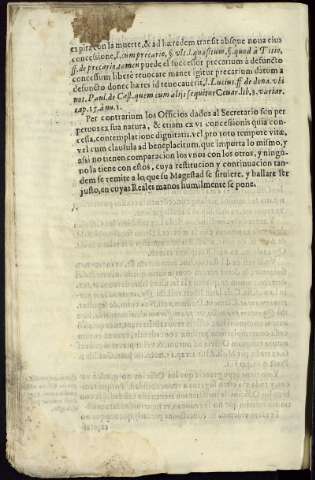 espira con la muerte, & ad hæredem transit absque noua eius
concessione, l. cum precario, §. vlt. l. quæsitum, §. quod à Titio,
ff. de precario, tamen puede el successor precarium à defuncto
concessum liberè reuocare manet igitur precarium datum a
defuncto donec hæres id reuocauerit, l. Lucius. ff. de dona. vbi
not. Paul. de Cast. quem cum alijs sequitur Couar. lib. 3. variar.
cap. 15. à nu. 1.
Per contrarium los Officios dados al Secretario son per
petuos ex sua natura, & etiam ex vi concessionis quia con-
cessa, contemplatione dignitati. vel pro toto tempore vitæ,
vel cum clausula ad beneplacitum, que importa lo mismo, y
assi no tienen comparacion los vnos con los otros, y ningu-
no la tiene con estos, cuya restitucion y continuacion tan-
dem se remite a lo que su Magestad se siruiere, y hallare ser
justo, en cuyas Reales manos humilmente se pone.